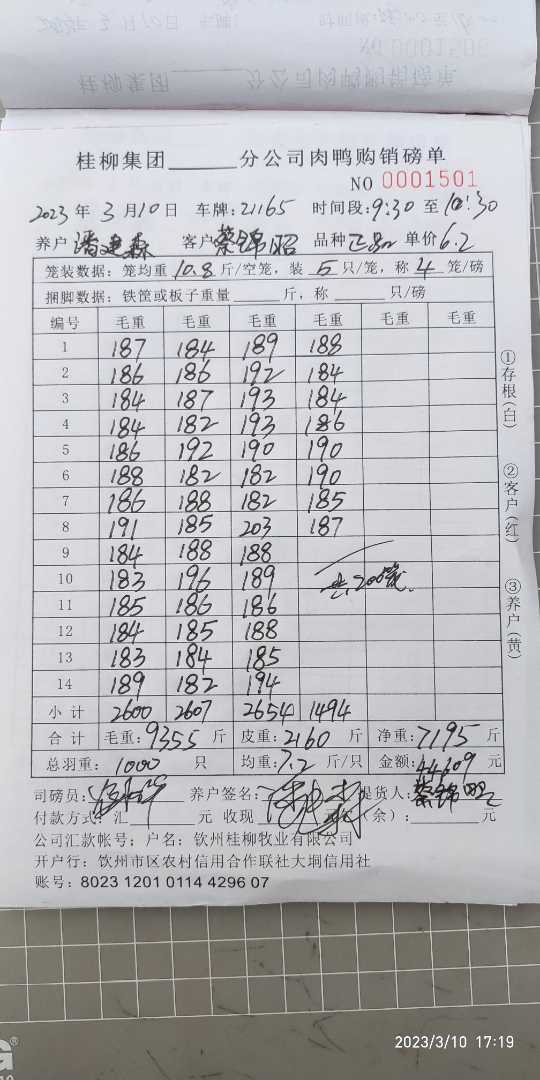 桂柳集团______分公司肉鸭购销磅单
NO 0001501
2023年3月10日 车牌:21165 时间段:9:30至10:30
养户潘建森 客户蔡锦昭 品种正品 单价6.2
笼装数据: 笼均重10.8斤/空笼, 装5只/笼, 称4笼/磅
捆脚数据: 铁筐或板子重量______斤, 称______只/磅
编号 毛重 毛重 毛重 毛重 毛重 毛重
1 187 184 189 188
2 186 186 192 184
3 184 187 193 184
4 184 182 193 186
5 186 192 190 190
6 188 182 182 190
7 186 188 182 185
8 191 185 203 187
9 184 188 188
10 183 196 189 共200笼.
11 185 186 186
12 184 185 188
13 183 184 185
14 189 182 194
小计 2600 2607 2654 1494
合计 毛重:9355斤 皮重:2160斤 净重:7195斤
总羽重: 1000 只 均重:7.2斤/只 金额:44609元
司磅员: 养户签名: 提货人:蔡锦昭
付款方式: 汇______元 收现 (余):______元
公司汇款帐号: 户名: 钦州桂柳牧业有限公司
开户行: 钦州市区农村信用合作联社大垌信用社
账号: 8023 1201 0114 4296 07
①存根(白)
②客户(红)
③养户(黄)
2023/3/10 17:19